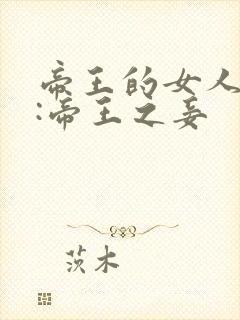 帝王的女人
:帝王之妾
茨木